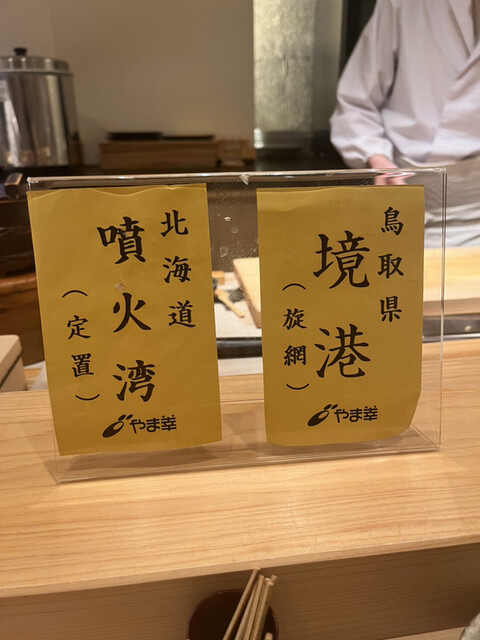 鳥取県
境港
(旋網)
やま幸
北海道
噴火湾
(定置)
やま幸